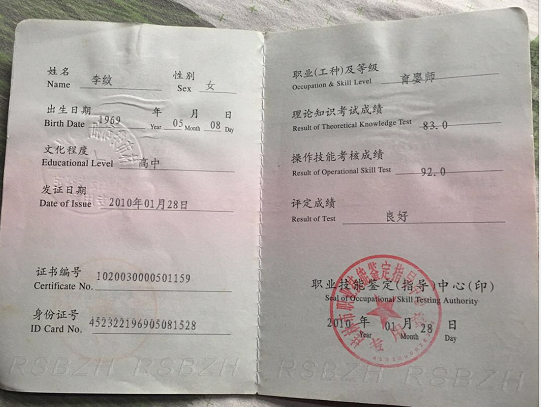 姓名 性别
Name 李纹 Sex 女
出生日期 年 月 日
Birth Date 1969 Year 05 Month 08 Day
文化程度
Educational Level 高中
发证日期
Date of Issue 2010年01月28日
证书编号
Certificate No. 1020030000501159
身份证号
ID Card No. 452322196905081528
RSBZH
职业(工种)及等级
Occupation & Skill Level 育婴师
理论知识考试成绩
Result of Theoretical Knowledge Test 83.0
操作技能考核成绩
Result of Operational Skill Test 92.0
评定成绩
Result of Test 良好
职业技能鉴定(指导)中心(印)
Seal of Occupational Skill Testing Authority
2010 年 01 月 28 日
Year Month Day
RSBZH RSBZH